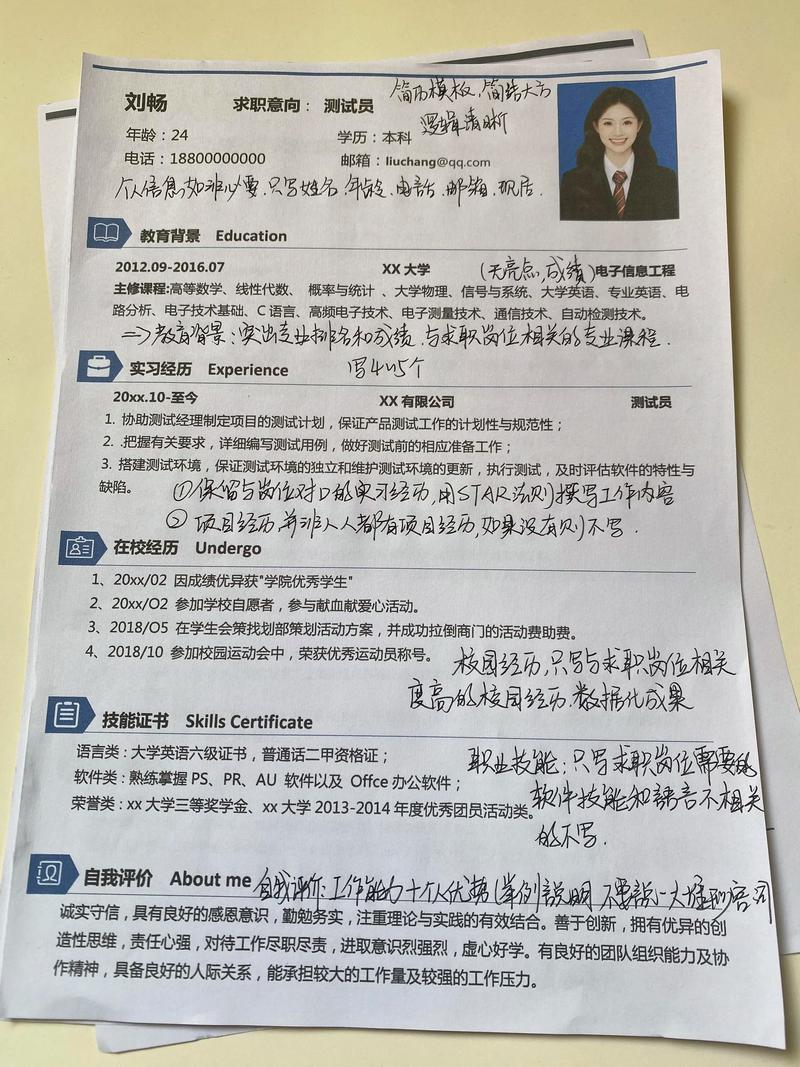 刘畅 求职意向： 测试员
简历模板，简洁大方
逻辑清晰
年龄：24 学历：本科
电话：18800000000 邮箱：liuchang@qq.com
个人信息，如非必要，只写姓名、年龄、电话、邮箱、现居.
教育背景 Education
2012.09-2016.07 XX 大学 (无亮点,成绩) 电子信息工程
主修课程:高等数学、线性代数、 概率与统计 、大学物理、信号与系统、大学英语、专业英语、电
路分析、电子技术基础、C 语言、高频电子技术、电子测量技术、通信技术、自动检测技术。
=>教育背景：突出专业排名和成绩，与求职岗位相关的专业课程.
写4~5个
实习经历 Experience
20xx.10-至今 XX 有限公司 测试员
1. 协助测试经理制定项目的测试计划，保证产品测试工作的计划性与规范性；
2. .把握有关要求，详细编写测试用例，做好测试前的相应准备工作；
3. 搭建测试环境，保证测试环境的独立和维护测试环境的更新，执行测试，及时评估软件的特性与
缺陷。
①保留与岗位对口的实习经历，用STAR法则撰写工作内容
② 项目经历，并非人人都有项目经历，如果没有则不写.
在校经历 Undergo
1、20xx/02 因成绩优异获"学院优秀学生"
2、20xx/O2 参加学校自愿者，参与献血献爱心活动。
3、2018/O5 在学生会策找划部策划活动方案，并成功拉倒商门的活动费助费。
4、2018/10 参加校园运动会中，荣获优秀运动员称号。
校园经历，只写与求职岗位相关
度高的校园经历，数据化成果
技能证书 Skills Certificate
语言类：大学英语六级证书，普通话二甲资格证；
软件类：熟练掌握 PS、PR、AU 软件以及 Offce 办公软件；
荣誉类：xx 大学三等奖学金、xx 大学 2013-2014 年度优秀团员活动类。
职业技能：只写求职岗位需要的
软件技能和語言不相关
的不写.
自我评价 About me
自我评价：工作能力+个人优势(举例說明，不要說一大堆形容词
诚实守信，具有良好的感恩意识，勤勉务实，注重理论与实践的有效结合。善于创新，拥有优异的创
造性思维，责任心强，对待工作尽职尽责，进取意识烈强烈，虚心好学。有良好的团队组织能力及协
作精神，具备良好的人际关系，能承担较大的工作量及较强的工作压力。